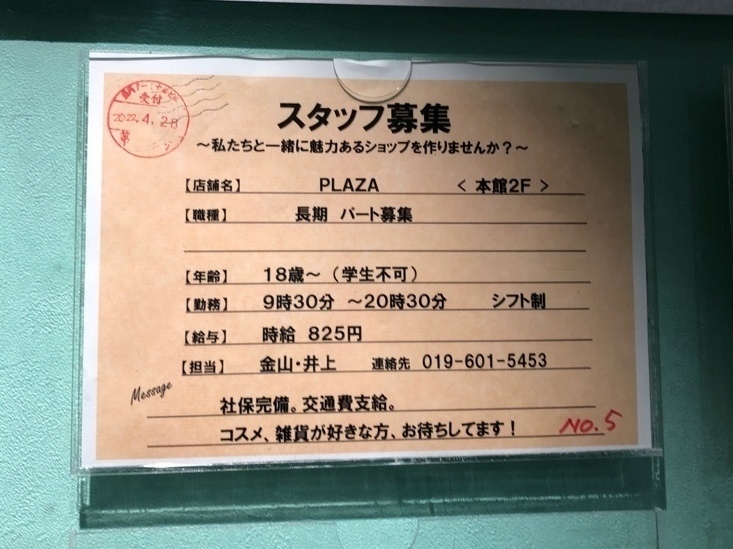 受付
2022.4.28
スタッフ募集
～私たちと一緒に魅力あるショップを作りませんか？～
【店舗名】 PLAZA ＜ 本館2F ＞
【職種】 長期 パート募集
【年齢】 18歳～（学生不可）
【勤務】 9時30分 ～20時30分 シフト制
【給与】 時給 825円
【担当】 金山・井上 連絡先 019-601-5453
Message
社保完備。交通費支給。
コスメ、雑貨が好きな方、お待ちしてます！
NO.5